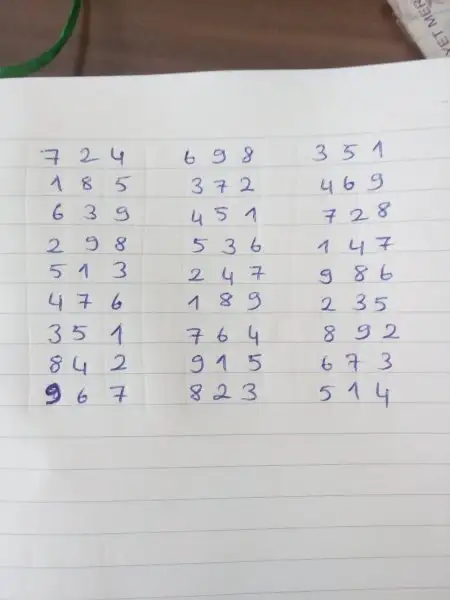 YET MER
7 2 4 6 9 8 3 5 1
1 8 5 3 7 2 4 6 9
6 3 9 4 5 1 7 2 8
2 9 8 5 3 6 1 4 7
5 1 3 2 4 7 9 8 6
4 7 6 1 8 9 2 3 5
3 5 1 7 6 4 8 9 2
8 4 2 9 1 5 6 7 3
9 6 7 8 2 3 5 1 4